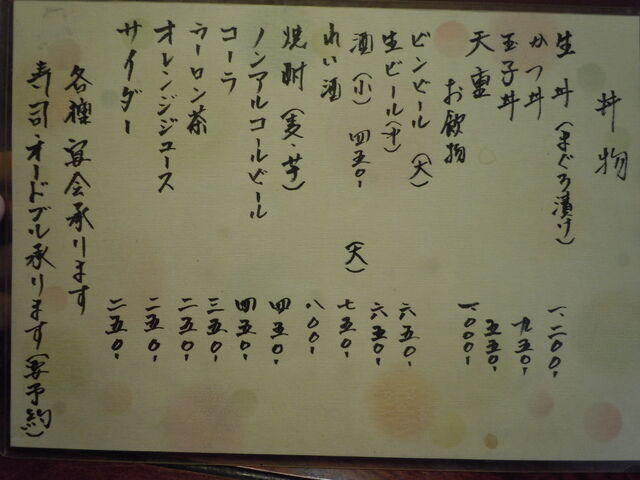 丼物
生丼(まぐろ漬け) 一、二〇〇、
かつ丼 九五〇、
玉子丼 五五〇、
天重 一、〇〇〇、
お飲物
ビンビール(大) 六五〇、
生ビール(中) 六五〇、
酒(小) 四五〇、 (大) 七五〇、
れい酒 八〇〇、
焼酎(麦・芋) 四五〇、
ノンアルコールビール 四五〇、
コーラ 三五〇、
ウーロン茶 二五〇、
オレンジジュース 二五〇、
サイダー 二五〇、
各種宴会承ります
寿司・オードブル承ります(要予約)